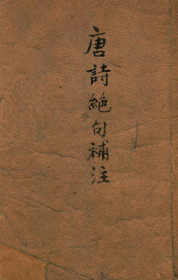 唐詩絕句補注